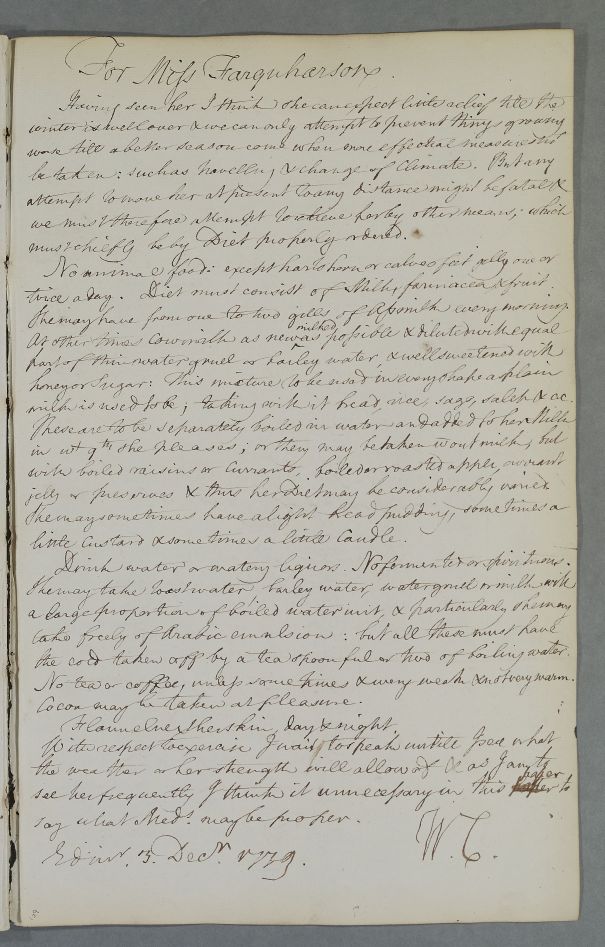 For Miss Farquharson.
Having seen her I think she can expect little relief till the
winter is well over & we can only attempt to prevent things growing
worse till a better season come when more effectual measures may
be taken: such as travelling & change of Climate. But any
attempt to move her at present to any distance might be fatal &
we must therefore attempt to relieve her by other means; which
must chiefly be by Diet properly ordered.
No animal food: except hartshorn or calves feet jelly one or
twice a day. Diet must consist of Milk, farinacea & fruit.
She may have from one to two gills of Assmilk every morning.
At other times Cowmilk as new milked as possible & diluted with equal
part of thin water gruel or barley water & well sweetened with
honey or Sugar: This mixture to be used in every shape as plain
milk is used to be; taking with it bread, rice, sago, salep &cc.
These are to be separately boiled in water and added to her Milk
in wt. qty she pleases; or they may be taken wout milk, but
with boiled raisins or Currants, boiled or roasted apple, currant
jelly or preserves & thus her Diet may be considerably varied.
She may sometimes have a light bread pudding, sometimes a
little Custard & sometimes a little Caudle.
Drink water or watery liquors. No fermented or spirituous.
She may take toast water barley water, water gruel or milk with
a large proportion of boiled water in it, & particularly she may
take freely of Arabic emulsion: but all these must have
the cold taken off by a tea spoonful or two of boiling water.
No tea or coffee, unless sometimes & very weak & not very warm.
Cocoa may be taken at pleasure.
Flannel next her skin, day & night.
With respect to exercise I wait to speak untill I see what
the weather or her strength will allow of & as I am to
see her frequently I think it unnecessary in this paper to
say what Meds. may be proper.
W.C.
Edinr. 3. Decr. 1779.